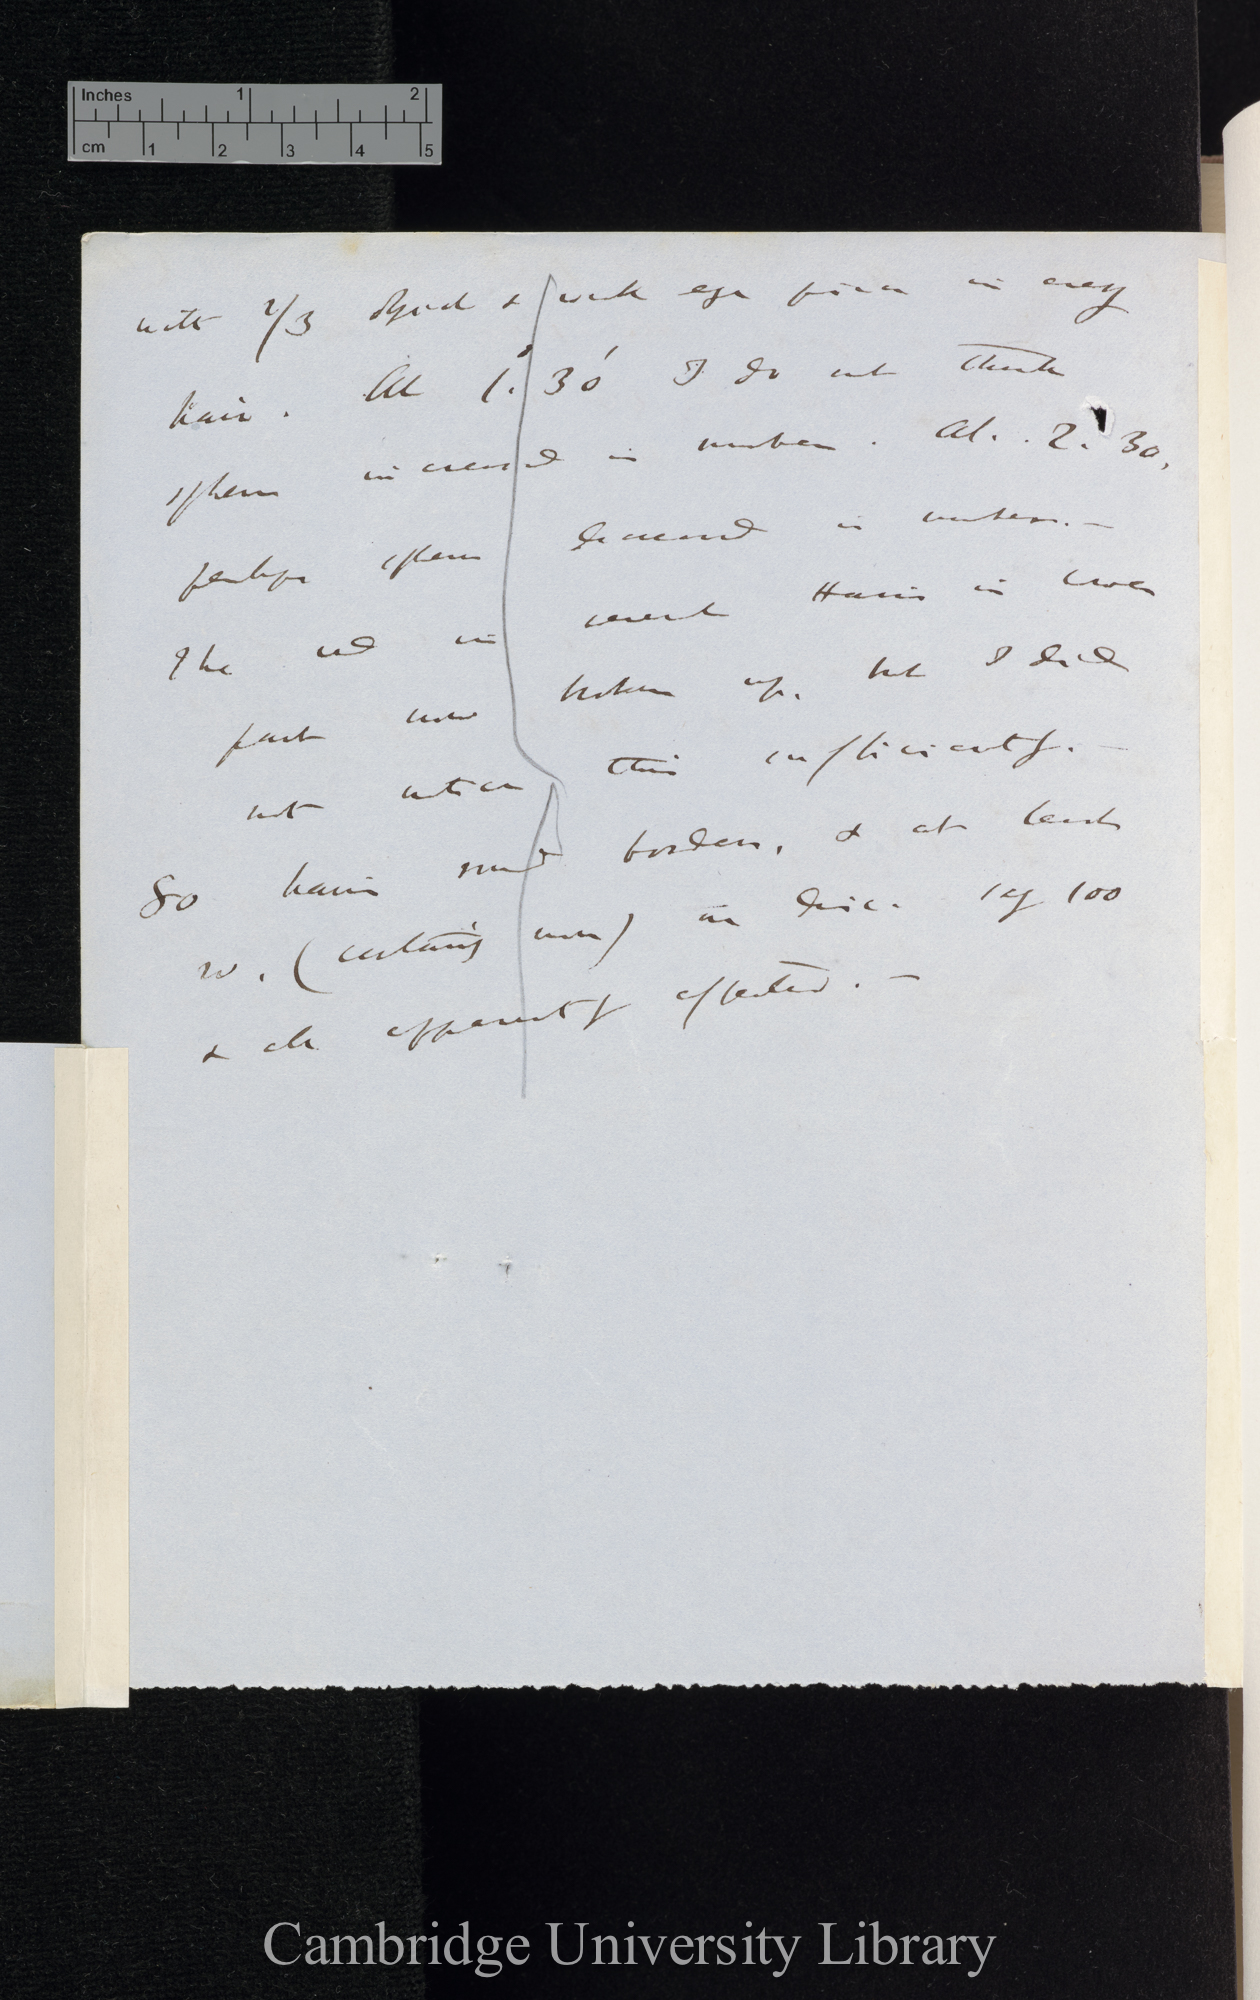 Inches 1 2
cm 1 2 3 4 5
with 2/3 & in every
hair. At 1°. 30' I do not think
spheres increased in number. At. 2. 30,
perhaps spheres decreased in number. —
The red in several Hairs in lower
part now broken up, but I did
not notice this sufficiently. —
80 hairs round border, & at least
20. (certainly more) on disc. say 100
& all apparently affected. —
Cambridge University Library